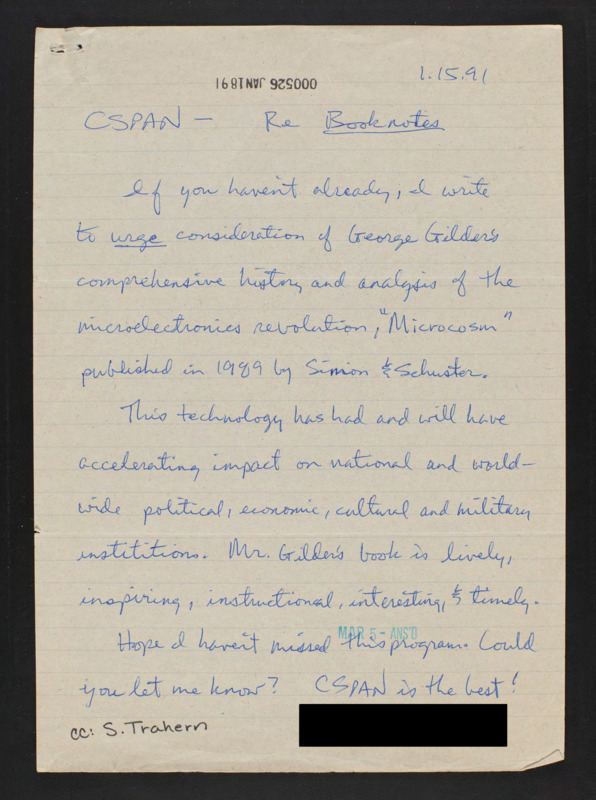 1.15.91
000526 JAN1891
CSPAN — Re Booknotes
If you haven't already, I write
to urge consideration of George Gilder's
comprehensive history and analysis of the
microelectronics revolution, "Microcosm"
published in 1989 by Simon & Schuster.
This technology has had and will have
accelerating impact on national and world-
wide political, economic, cultural and military
instititions. Mr. Gilder's book is lively,
inspiring, instructional, interesting, & timely.
MAR 5 - ANS'D
Hope I haven't missed this program. Could
you let me know? CSPAN is the best!
cc: S. Trahern